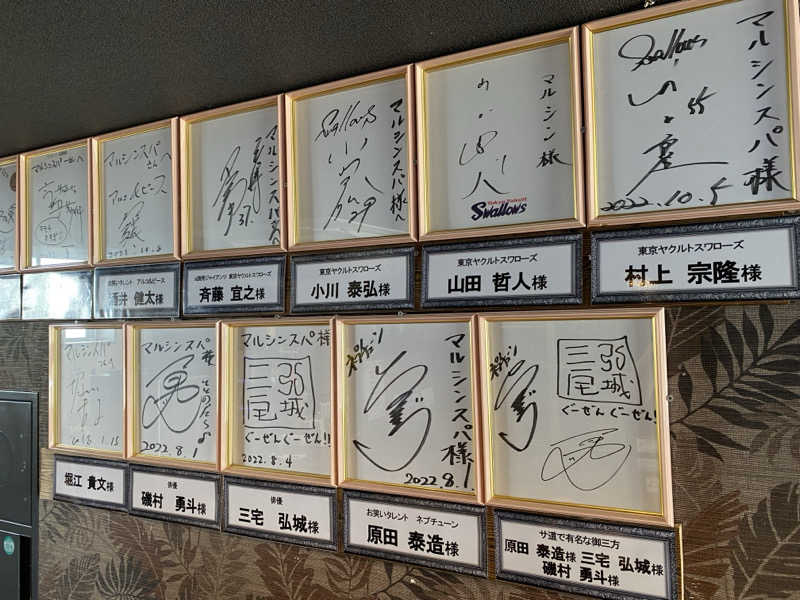 マルシンスパさんへ
アルコ&ピース
マルシンスパさんへ
Swallows
マルシンスパ様へ
29
マルシン様
Tokyo Yakult
Swallows
Swallows
55
マルシンスパ様
2022.10.5
お笑いタレント アルコ&ピース
酒井 健太様
元読売ジャイアンツ 東京ヤクルトスワローズ
斉藤 宜之様
東京ヤクルトスワローズ
小川 泰弘様
東京ヤクルトスワローズ
山田 哲人様
東京ヤクルトスワローズ
村上 宗隆様
マルシンスパ
2018.1.15
マルシンスパ様
ととのたう♪
2022.8.1
マルシンスパ様
三宅弘城
ぐーぜんぐーぜん!!
2022.8.4
ネプチューン
マルシンスパ様
2022.8.1
ネプチューン
三宅弘城
ぐーぜんぐーぜん!!
堀江 貴文様
俳優
磯村 勇斗様
俳優
三宅 弘城様
お笑いタレント ネプチューン
原田 泰造様
サ道で有名な御三方
原田 泰造様 三宅 弘城様
磯村 勇斗様